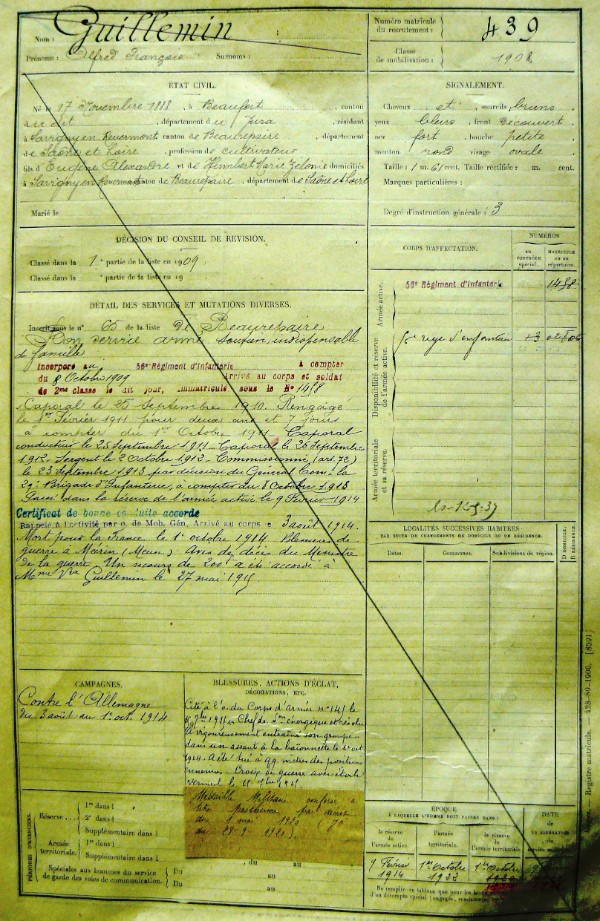 Nom : Guillemin
Prénoms : Alfred François Surnoms :
Numéro matricule du recrutement : 439
Classe de mobilisation : 1908
ETAT CIVIL.
Né le 17 Novembre 1888, à Beaufort, canton
du dit, département du Jura, résidant
à Savigny en Revermont canton de Beaurepaire, département
de Saône et Loire, profession de cultivateur
fils d'Eugène Alexandre et de Humbert Marie Zélonie domiciliés
à Savigny en Revermont canton de Beaurepaire, département de Saône et Loire
Marié le
SIGNALEMENT.
Cheveux et sourcils bruns
yeux bleus front découvert
nez fort bouche petite
menton rond visage ovale
Taille : 1 m. 61 cent. Taille rectifiée : m. cent.
Marques particulières :
Degré d'instruction générale : 3
DÉCISION DU CONSEIL DE RÉVISION.
Classé dans la 1e partie de la liste en 1909
Classé dans la partie de la liste en 19
DÉTAIL DES SERVICES ET MUTATIONS DIVERSES.
Inscrit sous le n° 65 de la liste de Beaurepaire
Bon service armé soutien indispensable
de famille
Incorporé au 56e Régiment d'Infanterie à compter
du 8 Octobre 1909 arrivé au corps et soldat
de 2me classe le dit jour, immatriculé sous le N° 1458
Caporal le 25 Septembre 1910. Rengagé
le 1er Février 1911 pour deux ans et 7 jours
à compter du 1er Octobre 1911. Caporal
conducteur le 25 Septembre 1911 - Caporal le 30 Septembre
1912 - Sergent le 2 Octobre 1912. Commissionné (art. 72)
le 23 Septembre 1913 par décision du Général Comt la
29e Brigade d'Infanterie, à compter du 8 Octobre 1913
Passé dans la réserve de l'armée active le 9 Février 1914
Certificat de bonne conduite accordé
Rappelé à l'activité par o. de Mob. Gén. Arrivé au corps le 3 août 1914.
Mort pour la France le 1er octobre 1914. Blessures de
guerre à (Meuse). Avis de décès du Ministre
de la guerre. Un secours de 200f a été accordé à
Mme Vve Guillemin le 27 mai 1915
CORPS D'AFFECTATION.
NUMÉROS
au contrôle spécial.
matricule ou au répertoire.
Armée active.
56e Régiment d'Infanterie
1458
Disponibilité et réserve de l'armée active.
Armée territoriale et sa réserve.
LOCALITÉS SUCCESSIVES HABITÉES
PAR SUITE DE CHANGEMENTS DE DOMICILE OU DE RÉSIDENCE.
Dates.
Communes.
Subdivisions de région.
D. domicile. R. résidence.
CAMPAGNES.
Contre l'Allemagne
du 3 août au 1er oct. 1914
BLESSURES, ACTIONS D'ÉCLAT,
DÉCORATIONS, ETC.
Cité à l'o. du Corps d'Armée n° 141 le
1915 Chef de Son énergique et résolu
A vigoureusement entraîné son groupe
dans un assaut à la baïonnette le 1er oct
1914. A été tué à 99 mètres des positions
ennemies - Croix de guerre avec étoile
vermeil
Médaille Militaire conférée à
titre posthume par décret
PÉRIODES D'EXERCICES.
Réserve :
1re dans l
2e dans l
Supplémentaire dans l
Armée territoriale.
1re dans l
Supplémentaire dans l
Spéciales aux hommes du service
de garde des voies de communication.
du au
du au
ÉPOQUE
À LAQUELLE L'HOMME DOIT PASSER DANS :
la réserve de l'armée active.
l'armée territoriale.
la réserve de l'armée territoriale.
DATE
9 Février 1914
1er octobre
1er octobre
Registre matricule. - 428-89-1906. [6391]